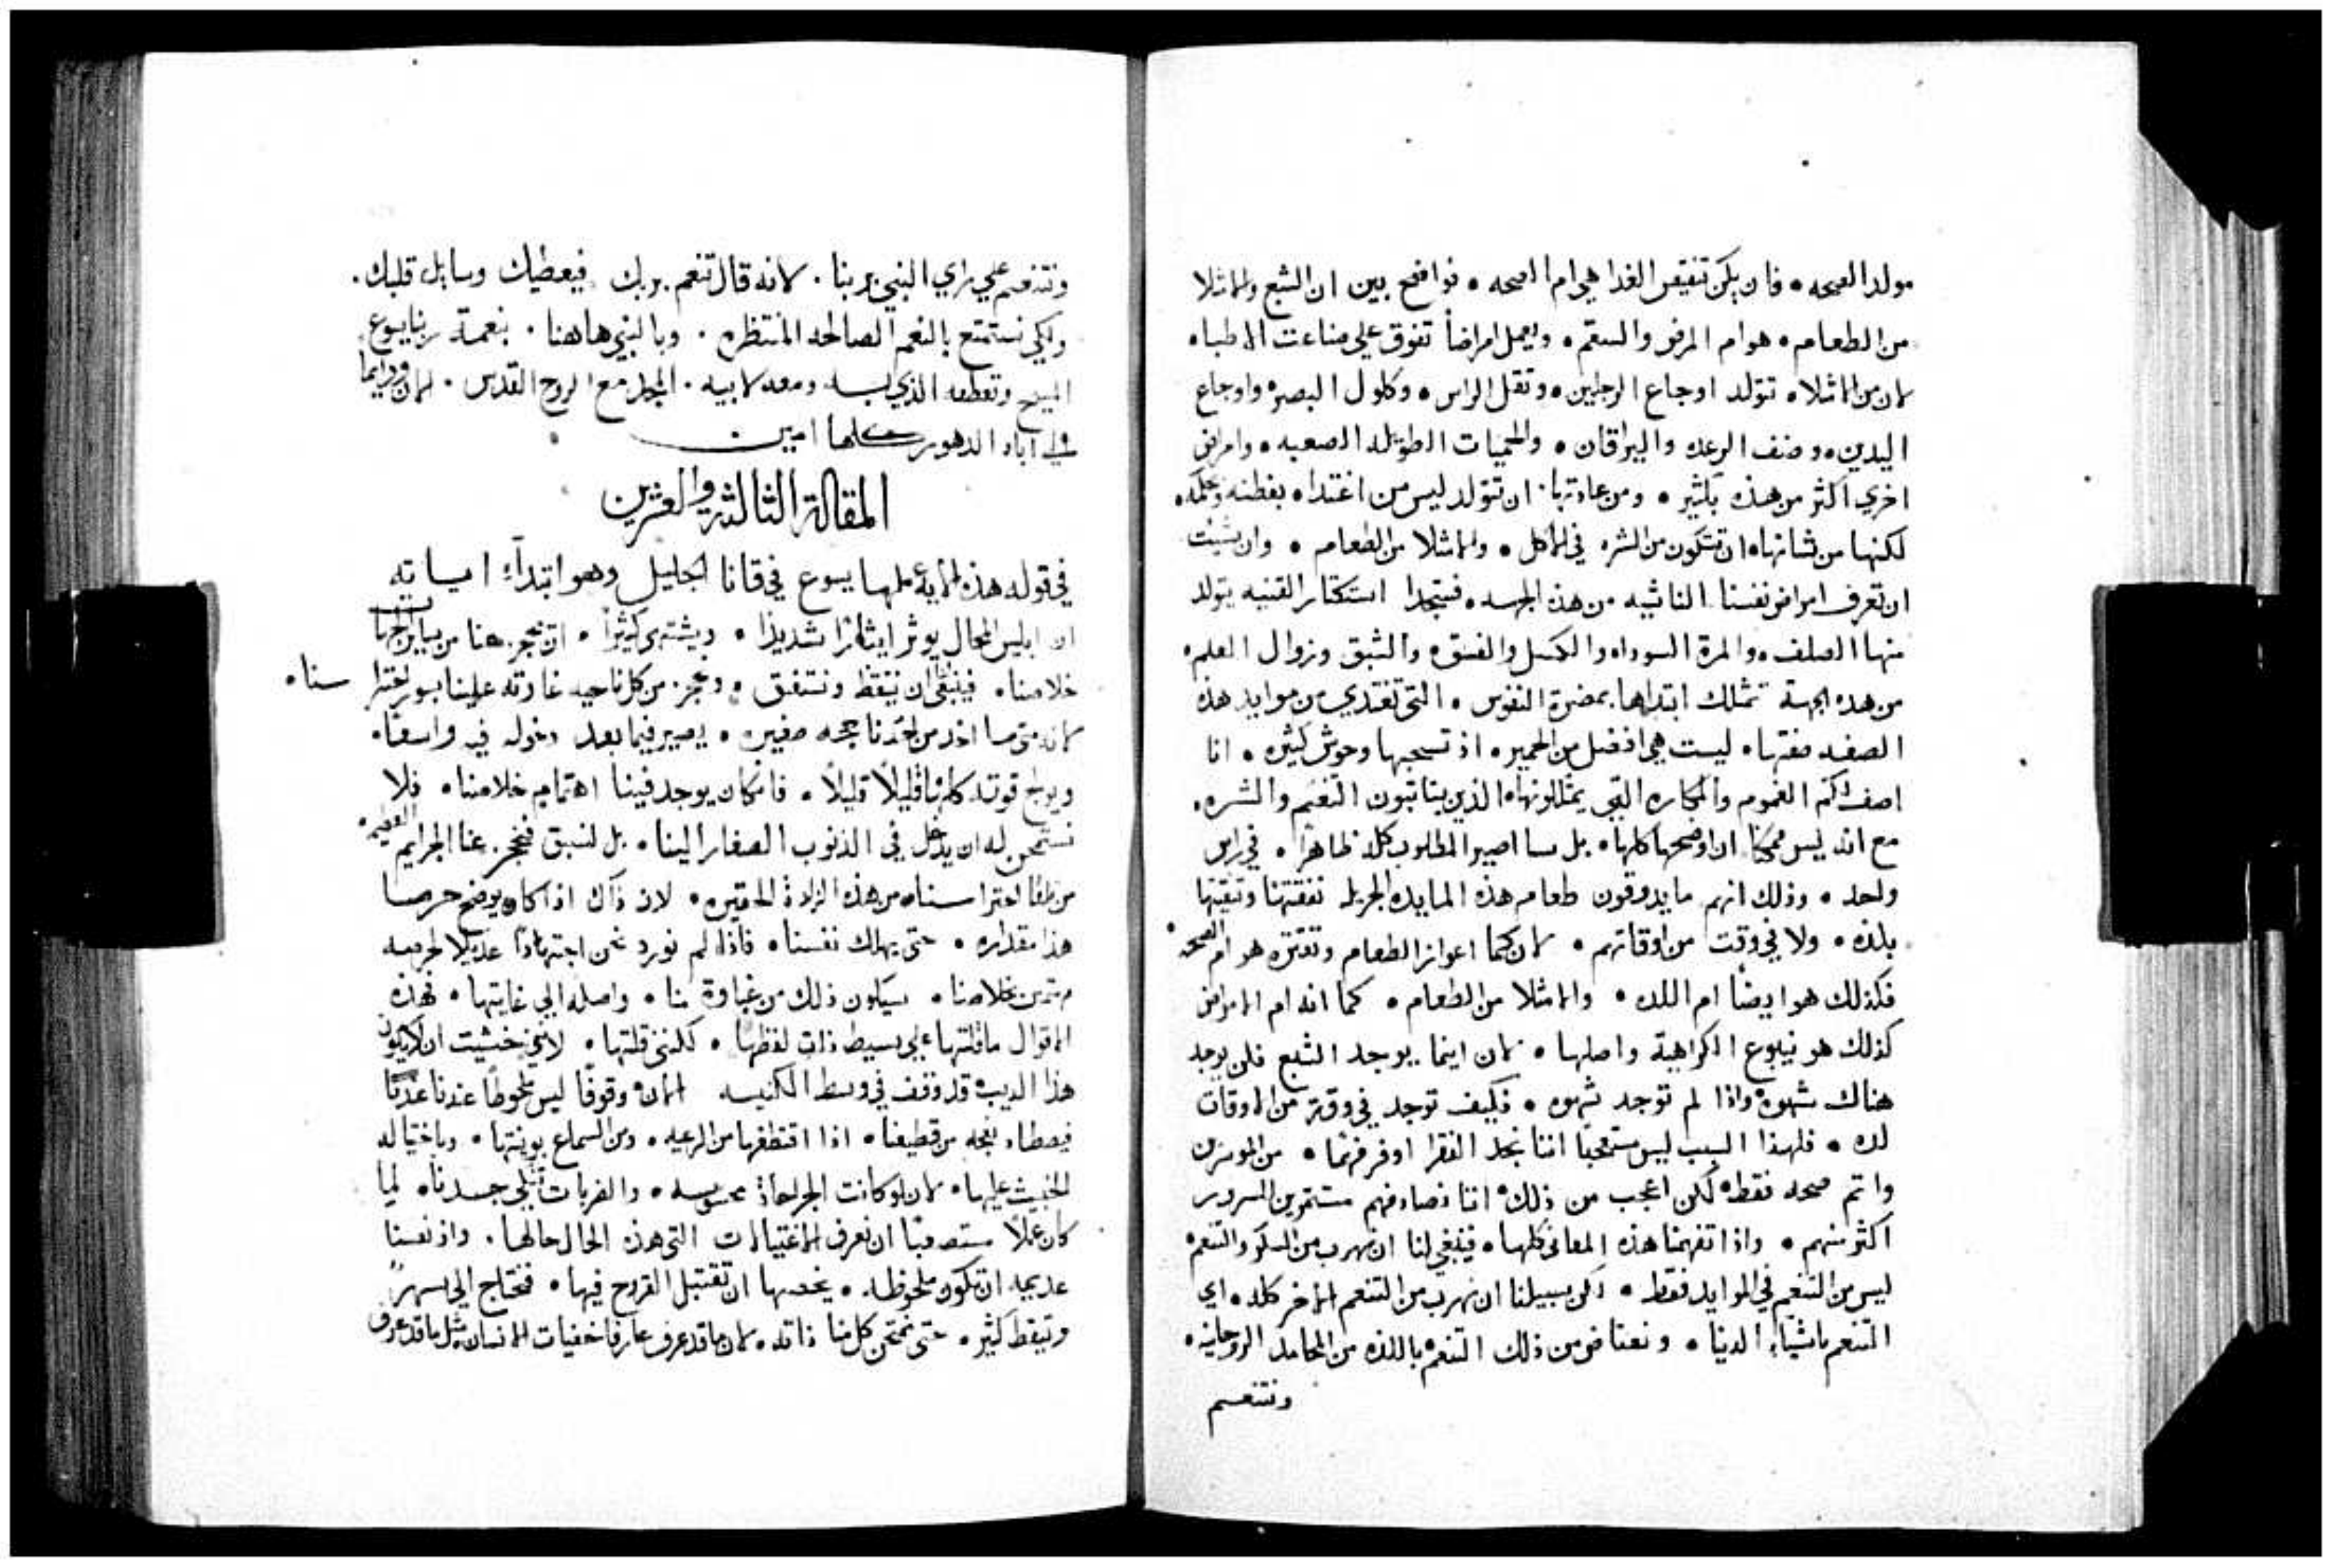 مولد الصحه • فان يكن تنقيص الغدا هي ام الصحه • فواضح بين ان الشبع والامتلا
من الطعام • هو ام المرض والسقم • ويعمل امراضاً تفوق علي صناعت الاطبا •
لان من الامتلا • تتولد اوجاع الرجلين • وتقل الراس • وكلول البصر • واوجاع
اليدين • وصنف الرعده واليرقان • والحميات الطويله الصعبه • وامراض
اخري اكثر من هذه بكثير • ومن عادتها ان تتولد ليس من اغتدا • بفطنه وحكمه •
لكنها من شانها • ان تتكون من الشره في الماكل • والامتلا من الطعام • وان شيت
ان تعرف امراض نفسنا الناشيه من هذه الجهه • فستجد استكثار القنيه يتولد
منها الصلف • والمرة السوداء والكسل والفسق • والشبق وزوال العلم •
من هذه الجهة تمتلك ابتداها بمضرة النفوس • التي تغتدي من موايد هذه
الصفه صفتها • ليست هي افضل من الحمير • اذ تسحبها وحوش كثيره • انا
اصف لكم الغموم والمكاره التي يمتلكونها • الذين يتاتبون التنعم والشره •
مع انه ليس ممكناً ان اوضحها كلها • بل سا اصير المطلوب كله ظاهراً • في راس
واحد • وذلك انهم ما يدوقون طعام هذه المايده الجزيله نفقتها وقنيتها
بلذه • ولا في وقت من اوقاتهم • لان كما اعواز الطعام وتقتره هو ام الصحه •
فكذلك هو ايضاً ام اللده • والامتلا من الطعام • كما انه ام الامراض
كذلك هو ينبوع الكراهية واصلها • لان اينما يوجد الشبع فلن يوجد
هناك شهوه واذا لم توجد شهوه • فكيف توجد في وقت من الاوقات
لده • فلهذا السبب ليس مستعجباً اننا نجد الفقرا اوفر فهماً • من الموسرين
واتم صحه فقط • لكن اعجب من ذلك • اننا نصادفهم مستتمرين السرور
اكثر منهم • واذا تفهمنا هذه المعاني كلها • فينبغي لنا ان نهرب من السكر والتنعم •
ليس من التنعم في الموايد فقط • لكن سبيلنا ان نهرب من التنعم الاخر كله • اي
التنعم باشياء الدنيا • ونعتاض من ذلك التنعم باللذه من المحامد الروحانيه •
ونتنعم
ونتنعم علي راي النبي بربنا • لانه قال تنعم بربك فيعطيك وسايل قلبك •
ولكي نستمتع بالنعم الصالحه المنتظره • وبالتي هاهنا • بنعمة ربنا يسوع
المسيح وتعطفه الذي له ومعه لابيه • المجد مع الروح القدس • الان ودايما
والي اباد الدهور كلها امين •
المقالة الثالثة والعشرين
في قوله هذه الايه عملها يسوع في قانا الجليل وهو ابتداء اياته
ان ابليس المحال يوثر ايثاراً شديداً • ويشتهي كثيراً • ان يحجز هنا من ساير الجها
خلاصنا • فينبغي ان نتيقظ ونستفق • ونحجز من كل ناحيه غارته علينا بسور احترا سنا •
لانه متي ما اخد من احدنا حجه صغيره • يصير فيما بعد دخوله فيه واسعاً •
ويولج قوته كلها قليلاً قليلاً • فان كان يوجد فينا اهتمام بخلاصنا • فلا
نسمحن له ان يدخل في الذنوب الصغار الينا • بل لنسبق فنحجز عنا الجرايم العظيمه •
من احتراسنا • من هذه الزلاة الحقيره • لان ذاك اذا كان يوضح حرصا
هذا مقداره • حتي يهلك نفسنا • فاذا لم نورد نحن اجتهاداً عديلا لحرصه
مهتمين بخلاصنا • سيكون ذلك من غباوة منا • واصله الي غايتها • فهذه
الاقوال ما قلتها علي بسيط ذات لفظها • لكنني قلتها • لانني خشيت ان لا يكون
هذا الديب قد وقف في وسط الكنيسه الان • وقوفاً ليس ملحوظاً عندنا
فيصطاد نعجه من قطيعنا • اذا اقتطفها من الرعيه • ومن السماع بونيتها • وباختياله
الخبيث عليها • لان لو كانت الجراحاة محسوسه • والضربات جسدنا • لما
كان عملاً مستصعباً ان نعرف الاغتيالات التي هذه الحال حالها • واذ نفسنا
عديمه ان تكون ملحوظه • يخصها ان تقتبل القروح فيها • فنحتاج الي سهر
وتيقظ كثير • حتي نمتحن كل منا ذاته • لان ما قد عرف عارف خفيات الانسان مثل ما قد عرف